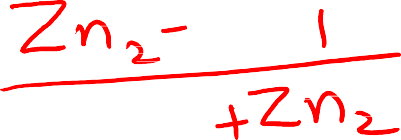 Zn₂- 1
+Zn₂